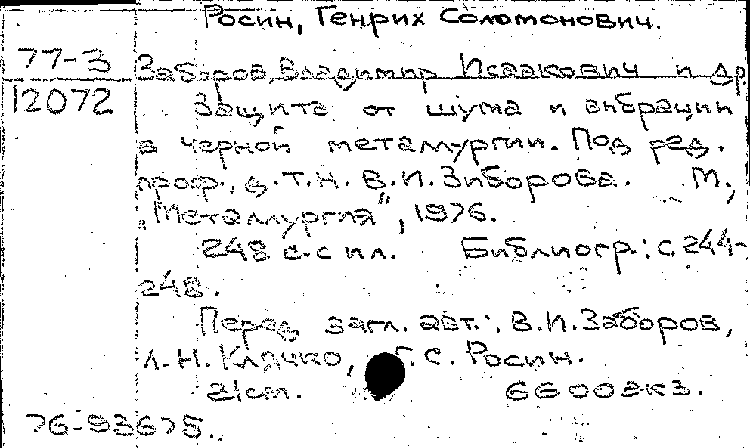 Росин, Генрих Соломонович.
77-3 Заборов, Владимир Исаакович и др.
12072 Защита от шума и вибрации
в черной металлургии. Под ред.
проф., д.т.н. В.И.Зиборова. М.,
„Металлургия", 1976.
248 с. с ил. Библиогр.: с 244-
248.
Перед загл. авт.: В.И.Заборов,
Л.Н. Клячко, Г.С. Росин.
21см. 6600экз.
76-93675.